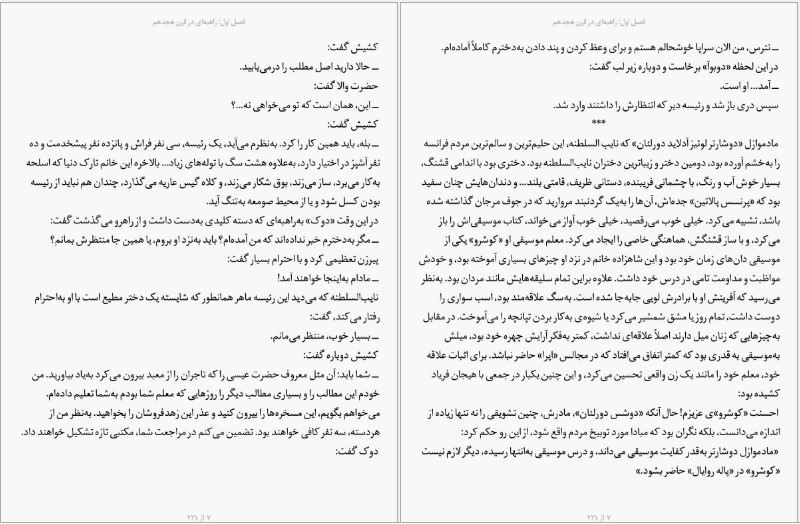 فصل اول: راهبه‌ای در قرن هجدهم
ـــ نترس، من الان سراپا خوشحالم هستم و برای وعظ کردن و پند دادن به‌دخترم کاملاً آماده‌ام.
در این لحظه «دوبوآ» برخاست و دوباره زیر لب گفت:
ـــ آمد... او است.
سپس دری باز شد و رئیسه دیر که انتظارش را داشتند وارد شد.
***
مادموازل «دوشارتر لوئیز آدلاید دورلئان» که نایب السلطنه، این حلیم‌ترین و سالم‌ترین مردم فرانسه
را به‌خشم آورده بود، دومین دختر و زیباترین دختران نایب‌السلطنه بود. دختری بود با اندامی قشنگ،
بسیار خوش آب و رنگ، با چشمانی فریبنده، دستانی ظریف، قامتی بلند... و دندان‌هایش چنان سفید
بود که «پرنسس پالاتین» جده‌اش، آن‌ها را به‌یک گردنبند مروارید که در جوف مرجان گذاشته شده
باشد، تشبیه می‌کرد. خیلی خوب می‌رقصید، خیلی خوب آواز می‌خواند، کتاب موسیقی‌اش را باز
می‌کرد، و با ساز قشنگش، هماهنگی خاصی را ایجاد می‌کرد. معلم موسیقی او «کوشرو» یکی از
موسیقی دان‌های زمان خود بود و این شاهزاده خانم در نزد او چیزهای بسیاری آموخته بود، و خودش
مواظبت و مداومت تامی در درس خود داشت. علاوه براین تمام سلیقه‌هایش مانند مردان بود. به‌نظر
می‌رسید که آفرینش او با برادرش لویی جابه‌جا شده است. به‌سگ علاقه‌مند بود، اسب سواری را
دوست داشت، تمام روز یا مشق شمشیر می‌کرد یا شیوه‌ی به‌کار بردن تپانچه را می‌آموخت. در مقابل
به‌چیزهایی که زنان میل دارند اصلاً علاقه‌ای نداشت، کمتر به‌فکر آرایش چهره خود بود، میلش
به‌موسیقی به قدری بود که کمتر اتفاق می‌افتاد که در مجالس «اپرا» حاضر نباشد. برای اثبات علاقه
خود، معلم خود را مانند یک زن واقعی تحسین می‌کرد، و این چنین یکبار در جمعی با هیجان فریاد
کشیده بود:
احسنت «کوشرو»ی عزیزم! حال آنکه «دوشس دورلئان»، مادرش، چنین تشویقی را نه تنها زیاده از
اندازه می‌دانست، بلکه نگران بود که مبادا مورد توبیخ مردم واقع شود، از این رو حکم کرد:
«مادموازل دوشارتر به‌قدر کفایت موسیقی می‌داند، و درس موسیقی به‌انتها رسیده، دیگر لازم نیست
«کوشرو» در «پاله روایال» حاضر بشود.»
۷ از ۲۲۱
فصل اول: راهبه‌ای در قرن هجدهم
کشیش گفت:
ـــ حالا دارید اصل مطلب را درمی‌یابید.
حضرت والا گفت:
ـــ این، همان است که تو می‌خواهی نه...؟
کشیش گفت:
ـــ بله، باید همین کار را کرد. به‌نظرم می‌آید، یک رئیسه، سی نفر فراش و پانزده نفر پیشخدمت و ده
نفر آشپز در اختیار دارد، به‌علاوه هشت سگ با توله‌های زیاد... بالاخره این خانم تارک دنیا که اسلحه
به‌کار می‌برد، ساز می‌زند، بوق شکار می‌زند، و کلاه گیس عاریه می‌گذارد، چندان هم نباید از رئیسه
بودن کسل شود و یا از محیط صومعه به‌تنگ آید.
در این وقت «دوک» به‌راهبه‌ای که دسته کلیدی به‌دست داشت و از راهرو می‌گذشت گفت:
ـــ مگر به‌دخترم خبر نداده‌اند که من آمده‌ام؟ باید به‌نزد او بروم، یا همین جا منتظرش بمانم؟
پیرزن تعظیمی کرد و با احترام بسیار گفت:
ـــ مادام به‌اینجا خواهند آمد!
نایب‌السلطنه که می‌دید این رئیسه ماهر همانطور که شایسته یک دختر مطیع است با او به‌احترام
رفتار می‌کند، گفت:
ـــ بسیار خوب، منتظر می‌مانم.
کشیش دوباره گفت:
ـــ شما باید: آن مثل معروف حضرت عیسی را که تاجران را از معبد بیرون می‌کرد به‌یاد بیاورید. من
خودم این مطالب را و بسیاری مطالب دیگر را روزهایی که معلم شما بودم به‌شما تعلیم داده‌ام.
می‌خواهم بگویم، این مسخره‌ها را بیرون کنید و عذر این زهدفروشان را بخواهید. به‌نظر من از
هردسته، سه نفر کافی خواهند بود. تضمین می‌کنم در مراجعت شما، مکتبی تازه تشکیل خواهند داد.
دوک گفت:
۷ از ۲۲۱